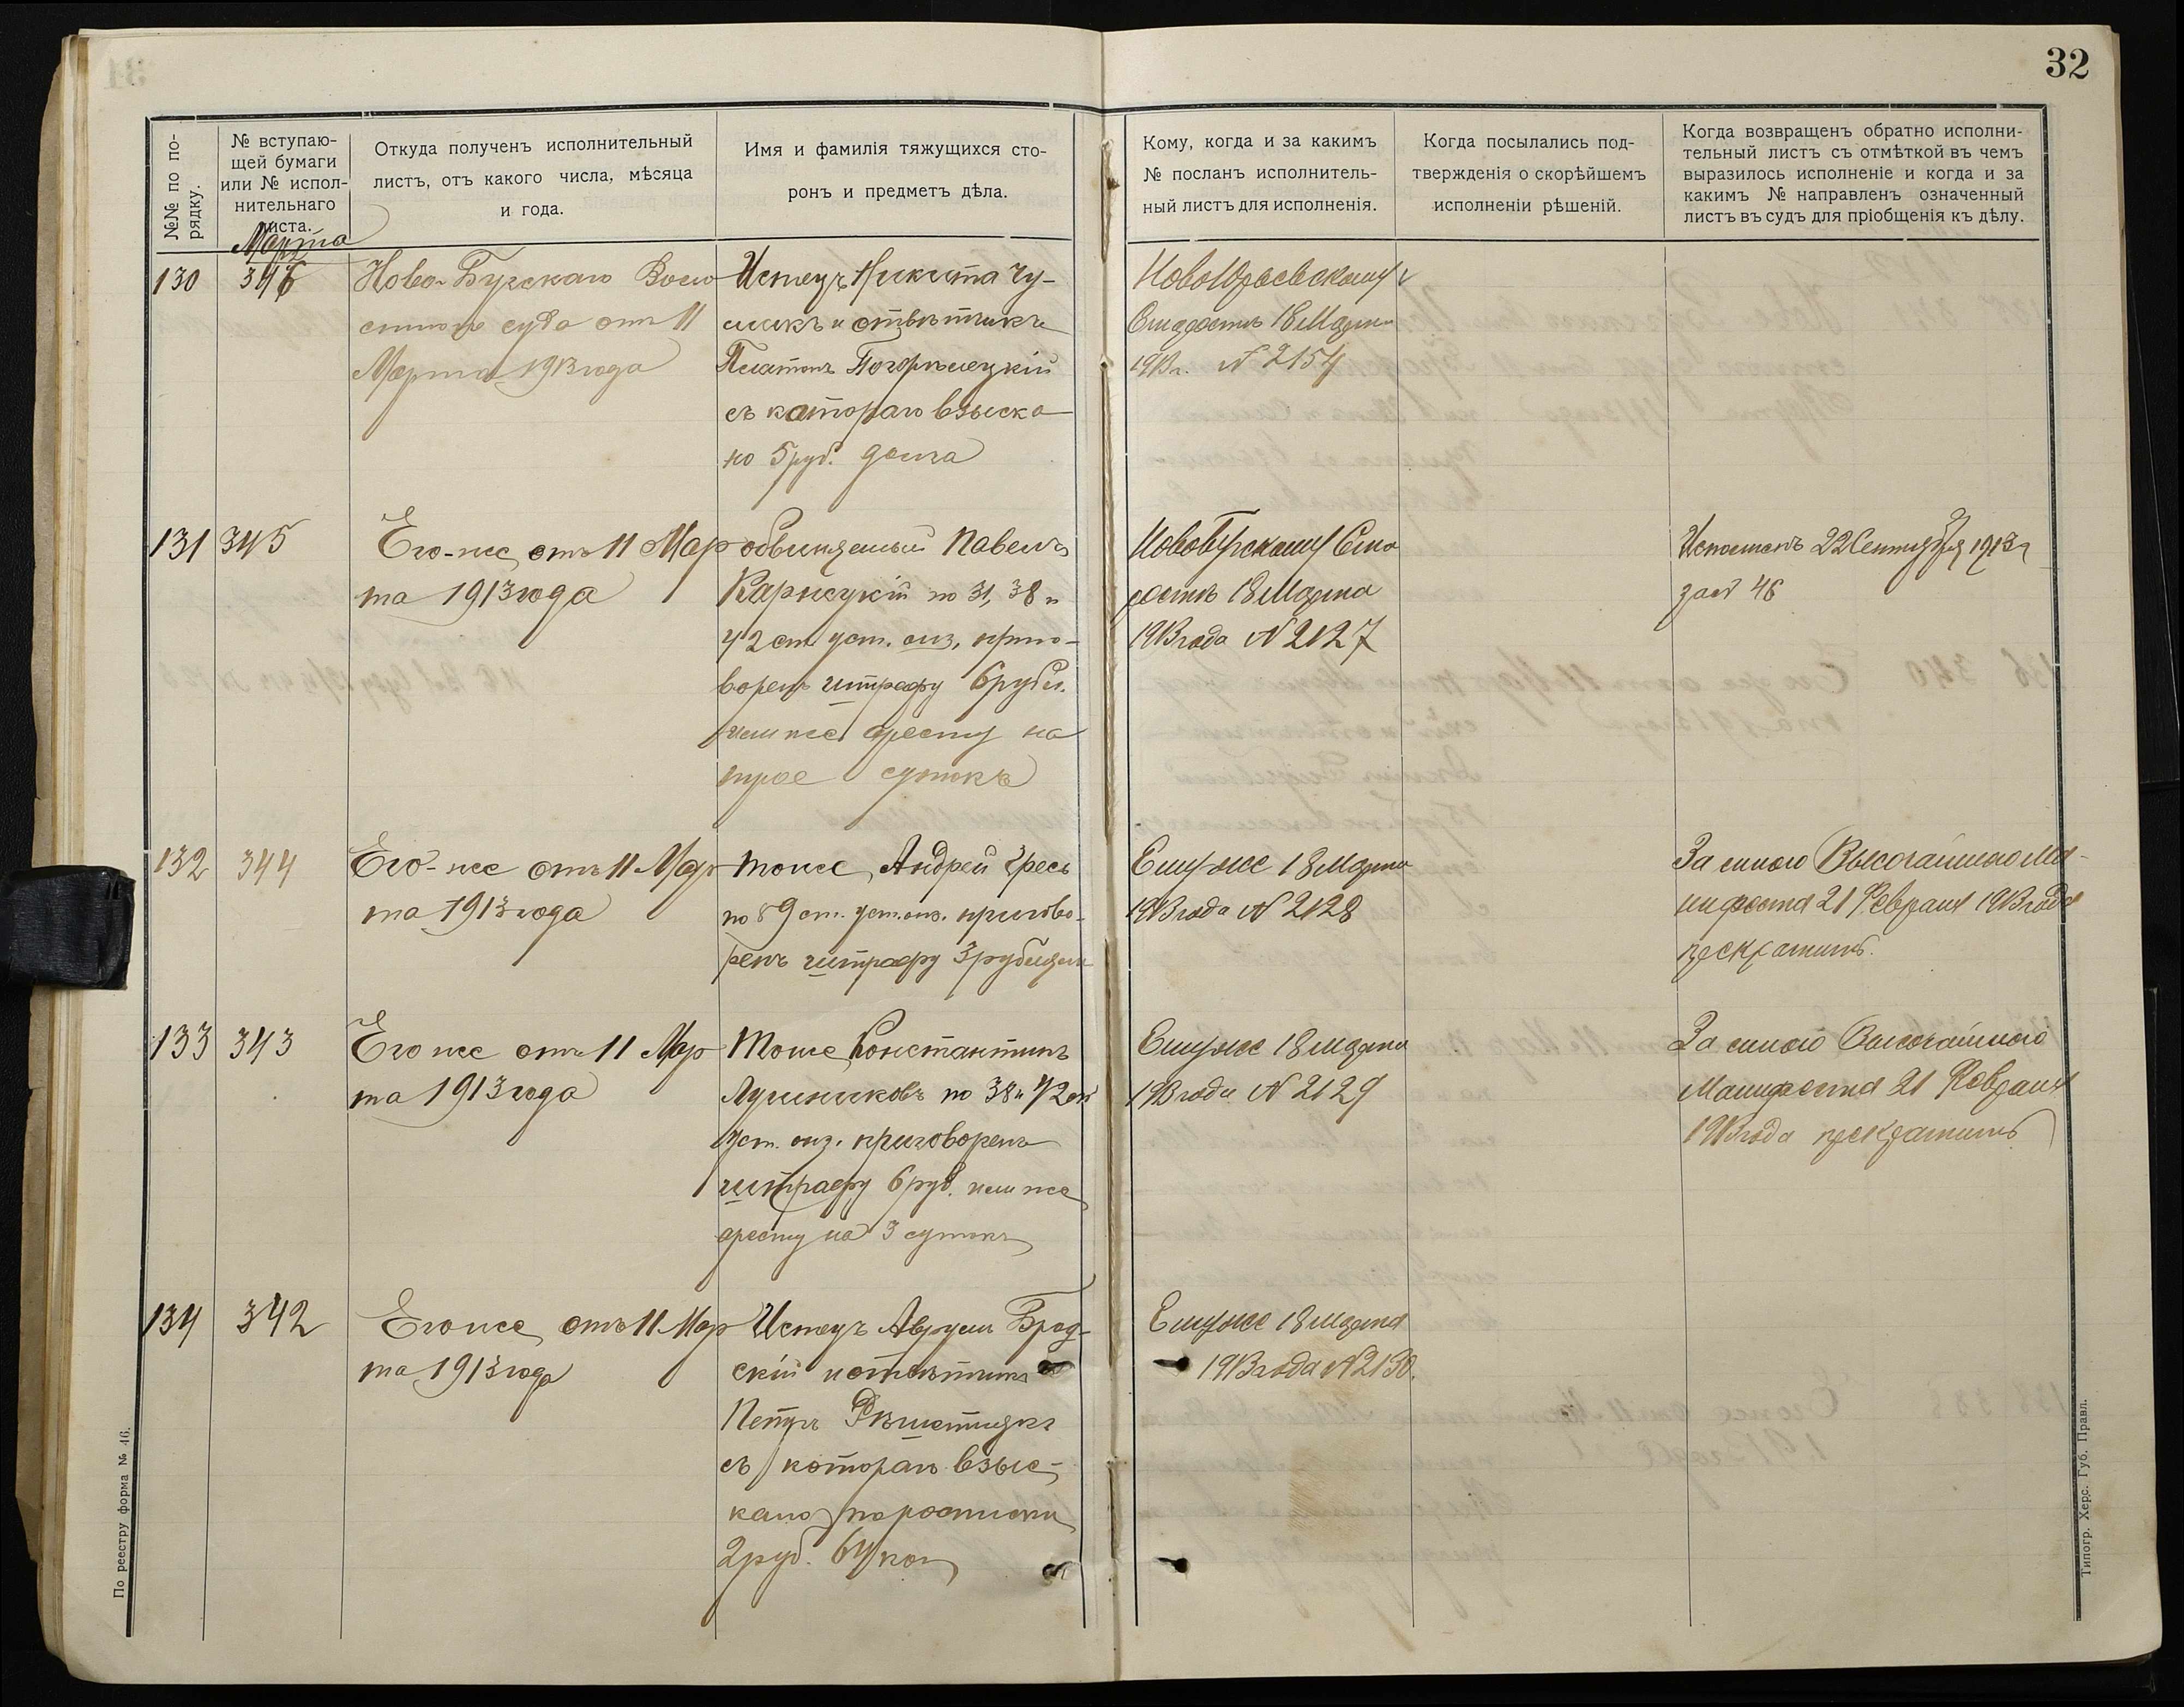 32
№№ по по-
рядку.
№ вступаю-
щей бумаги
или № испол-
нительнаго
листа.
Откуда полученъ исполнительный
листъ, отъ какого числа, мѣсяца
и года.
Имя и фамилія тяжущихся сто-
ронъ и предметъ дѣла.
Кому, когда и за какимъ
№ посланъ исполнитель-
ный листъ для исполненія.
Когда посылались под-
твержденія о скорѣйшемъ
исполненіи рѣшеній.
Когда возвращенъ обратно исполни-
тельный листъ съ отмѣткой въ чемъ
выразилось исполненіе и когда и за
какимъ № направленъ означенный
листъ въ судъ для пріобщенія къ дѣлу.
Марта
130
346
Ново-Бугскаго Воло
стного суда отъ 11
Марта 1913 года
Истецъ Никита Чу-
и отвѣтчикъ
Платонъ Погорѣлецкій
съ котораго взыска
но 5 руб. долга
НовоЮрьевскому
Старостѣ 18 Марта
1913 г. № 2154
131
345
Его-же отъ 11 Мар
та 1913 года
обвиняемый Павелъ
по 31, 38 и
42 ст. уст. приго-
воренъ штрафу 6 рубл.
или же аресту на
трое сутокъ
НовоБугскому Ста
ростѣ 18 Марта
1913 года № 2127
Исполненъ 22 Сентября 1913 г
46
132
344
Его-же отъ 11 Мар
та 1913 года
тоже, Андрей
по 89 ст. уст. пригово-
ренъ штрафу 3 рублямъ
Ему же 18 Марта
1913 года № 2128
За силою Высочайшаго Ма-
нифеста 21 Февраля 1913 года
прекратить.
133
343
Его же отъ 11 Мар
та 1913 года
тоже Константинъ
Лушниковъ по 38 и 42 ст
уст. приговоренъ
штрафу 6 руб. или же
аресту на 3 сутокъ
Ему же 18 Марта
1913 года № 2129
За силою Высочайшаго
Манифеста 21 Февраля
1913 года прекратить
134
342
Его же отъ 11 Мар
та 1913 года
Истецъ Аврумъ Брод-
скій и отвѣтчикъ
Петръ
съ котораго взыс-
кано по росписки
2 руб. 64 коп
Ему же 18 Марта
1913 года № 2130.
По реестру форма № 46.
Типогр. Херс. Губ. Правл.